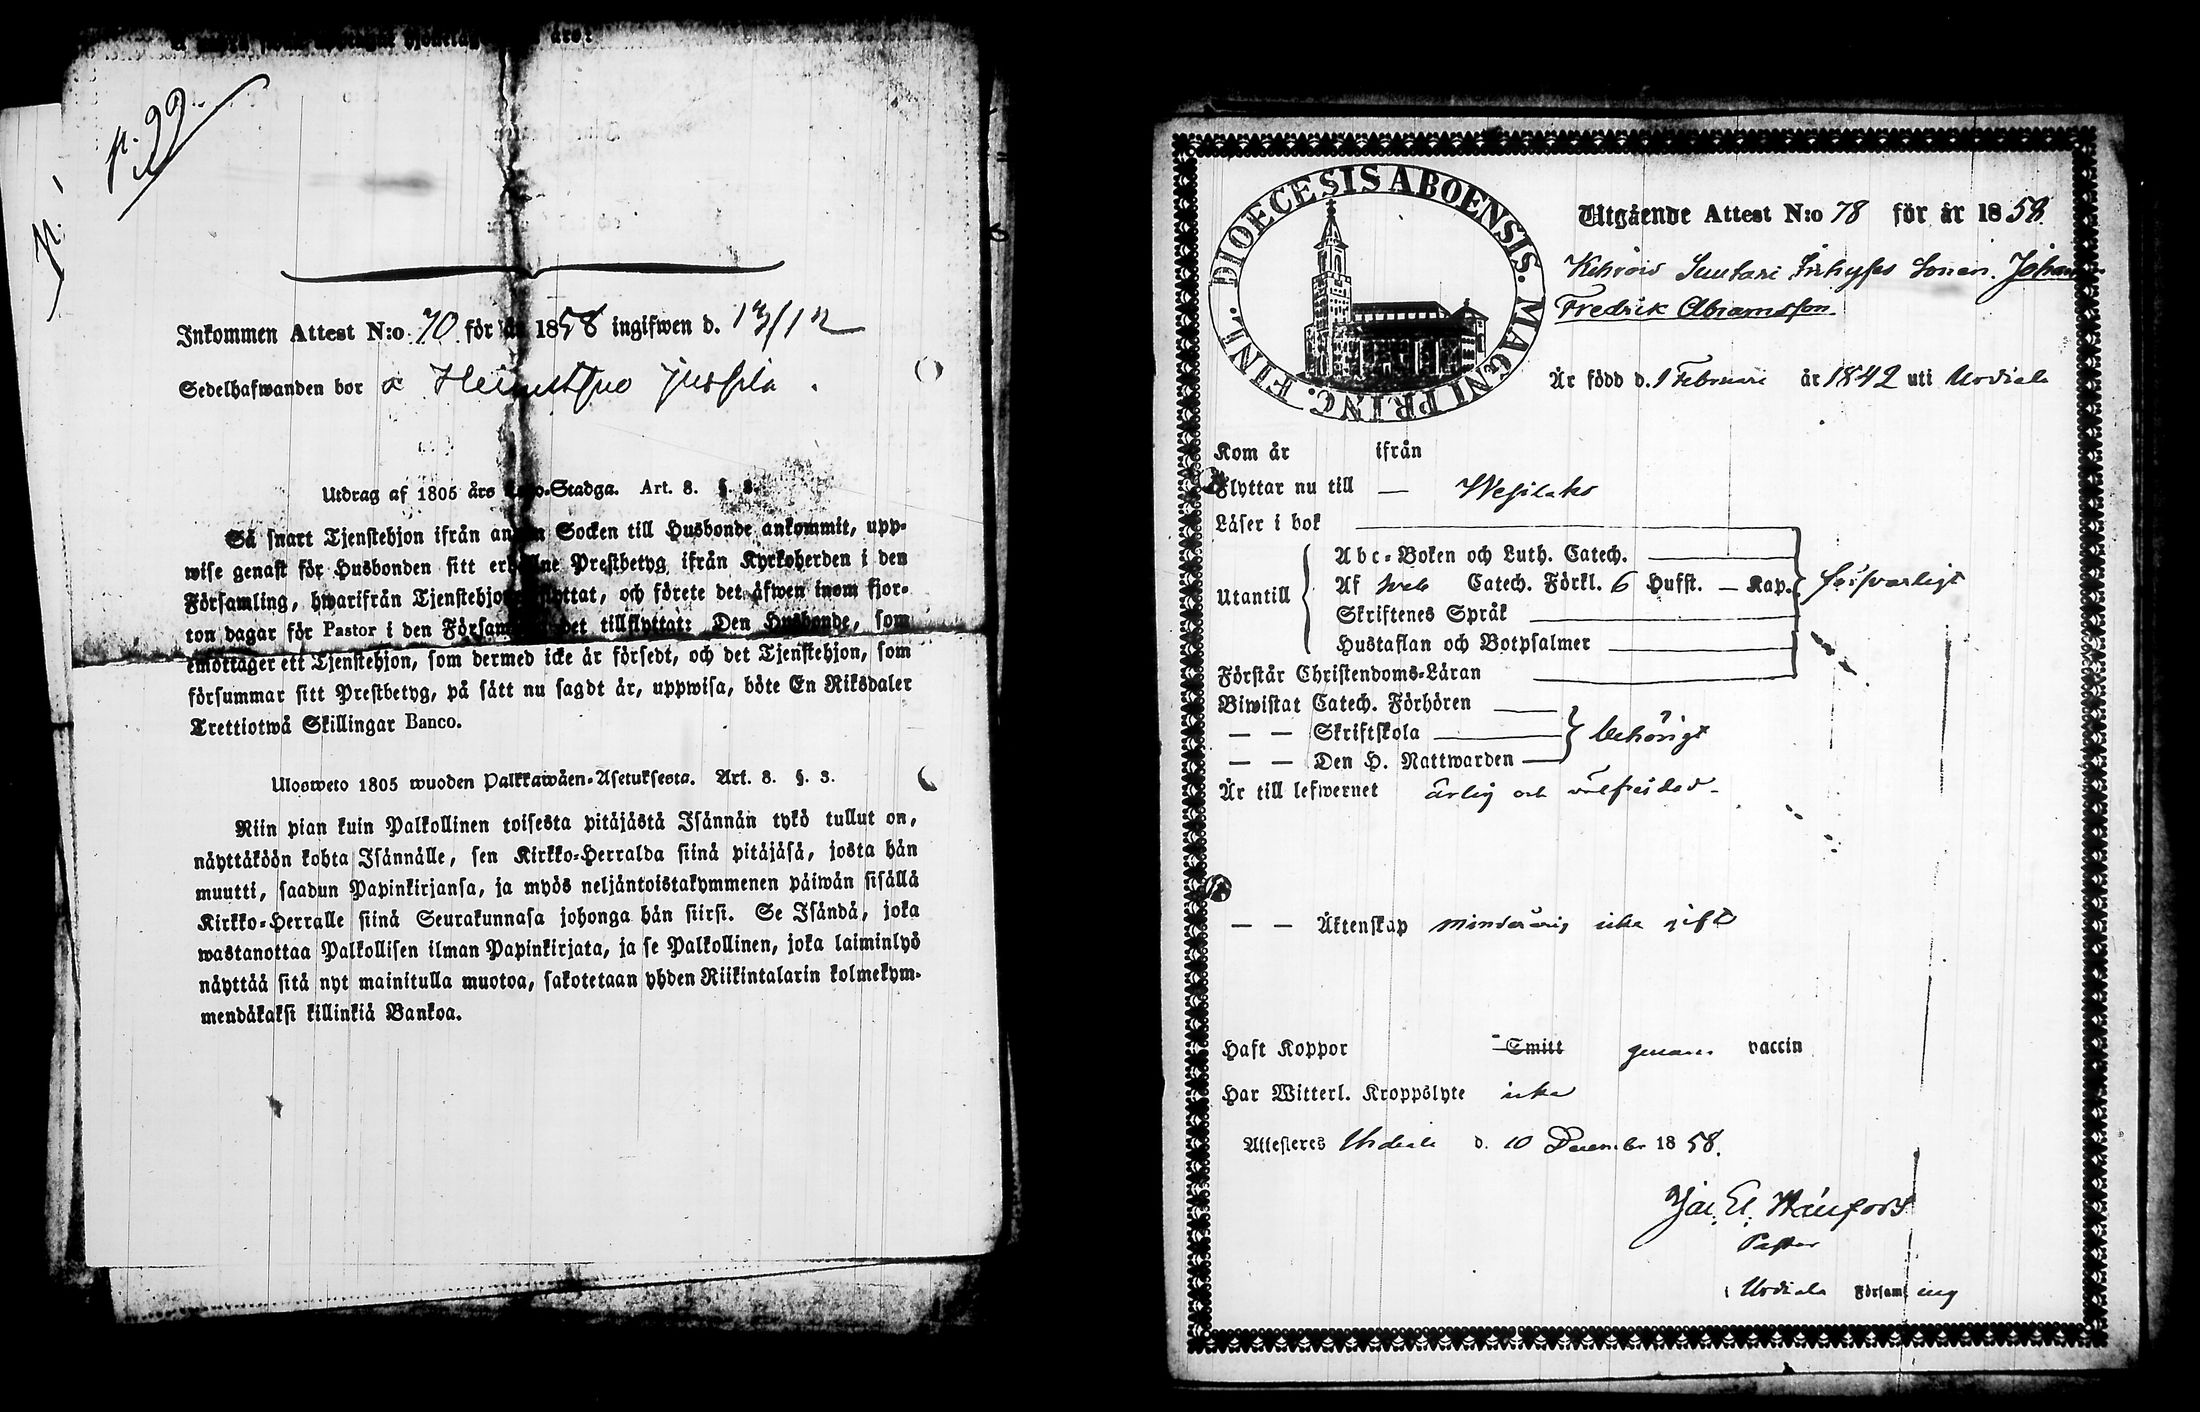 p. 99.
Inkommen Attest N:o 70 för år 1858 ingifwen d. 13/12
Sedelhafwanden bor å Heinusuo Jussila.
Utdrag af 1805 års Lego-Stadga. Art. 8. §. 3.
Så snart Tjenstehjon ifrån annan Socken till Husbonde ankommit, upp-
wise genast för Husbonden sitt erhållne Prestbetyg ifrån Kyrkoherden i den
Församling, hwarifrån Tjenstehjonet flyttat, och förete det äfwen inom fjor-
ton dagar för Pastor i den Församling det tillflyttat: Den Husbonde, som
emottager ett Tjenstehjon, som dermed icke är försedt, och det Tjenstehjon, som
försummar sitt Prestbetyg, på sätt nu sagdt är, uppwisa, böte En Riksdaler
Trettiotwå Skillingar Banco.
Ulosweto 1805 wuoden Palkkawäen-Asetuksesta. Art. 8. §. 3.
Niin pian kuin Palkollinen toisesta pitäjästä Isännän tykö tullut on,
näyttäköön kohta Isännälle, sen Kirkko-Herralda siinä pitäjäsä, josta hän
muutti, saadun Papinkirjansa, ja myös neljäntoistakymmenen päiwän sisällä
Kirkko-Herralle siinä Seurakunnasa johonga hän siirsi. Se Isändä, joka
wastanottaa Palkollisen ilman Papinkirjata, ja se Palkollinen, joka laiminlyö
näyttää sitä nyt mainitulla muotoa, sakotetaan yhden Riikintalarin kolmekym-
mendäkaksi killinkiä Bankoa.
DIOECESIS ABOENSIS. MAGNI PRINC. FINL.
Utgående Attest N:o 78 för år 1858
Kehrois Suutari Sonen. Johan
Fredrik Abramsson.
Är född d. 1 Februari år 1842 uti Urdiala
Kom år ifrån
Flyttar nu till — Wesilaks
Läser i bok
Utantill
Abc-Boken och Luth. Catech.
Af Sveb Catech. Förkl. 6 Hufst. — Kap. försvarligt
Skriftenes Språk
Hustaflan och Botpsalmer
Förstår Christendoms-Läran
Biwistat Catech. Förhören
— — Skriftskola behörigt
— — Den H. Nattwarden
Är till lefwernet ärlig och välfrejdad
— — Äktenskap minderårig icke gift
Haft Koppor Smitt genom vaccin
Har Witterl. Kroppslyte icke
Attesteres Urdiala d. 10 December 1858.
Pastor
i Urdiala Församling